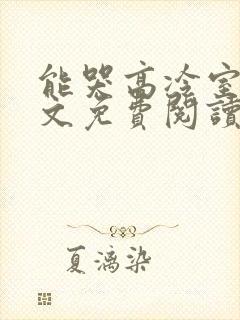 能哭高冷室
文免費閱讀
夏漓染